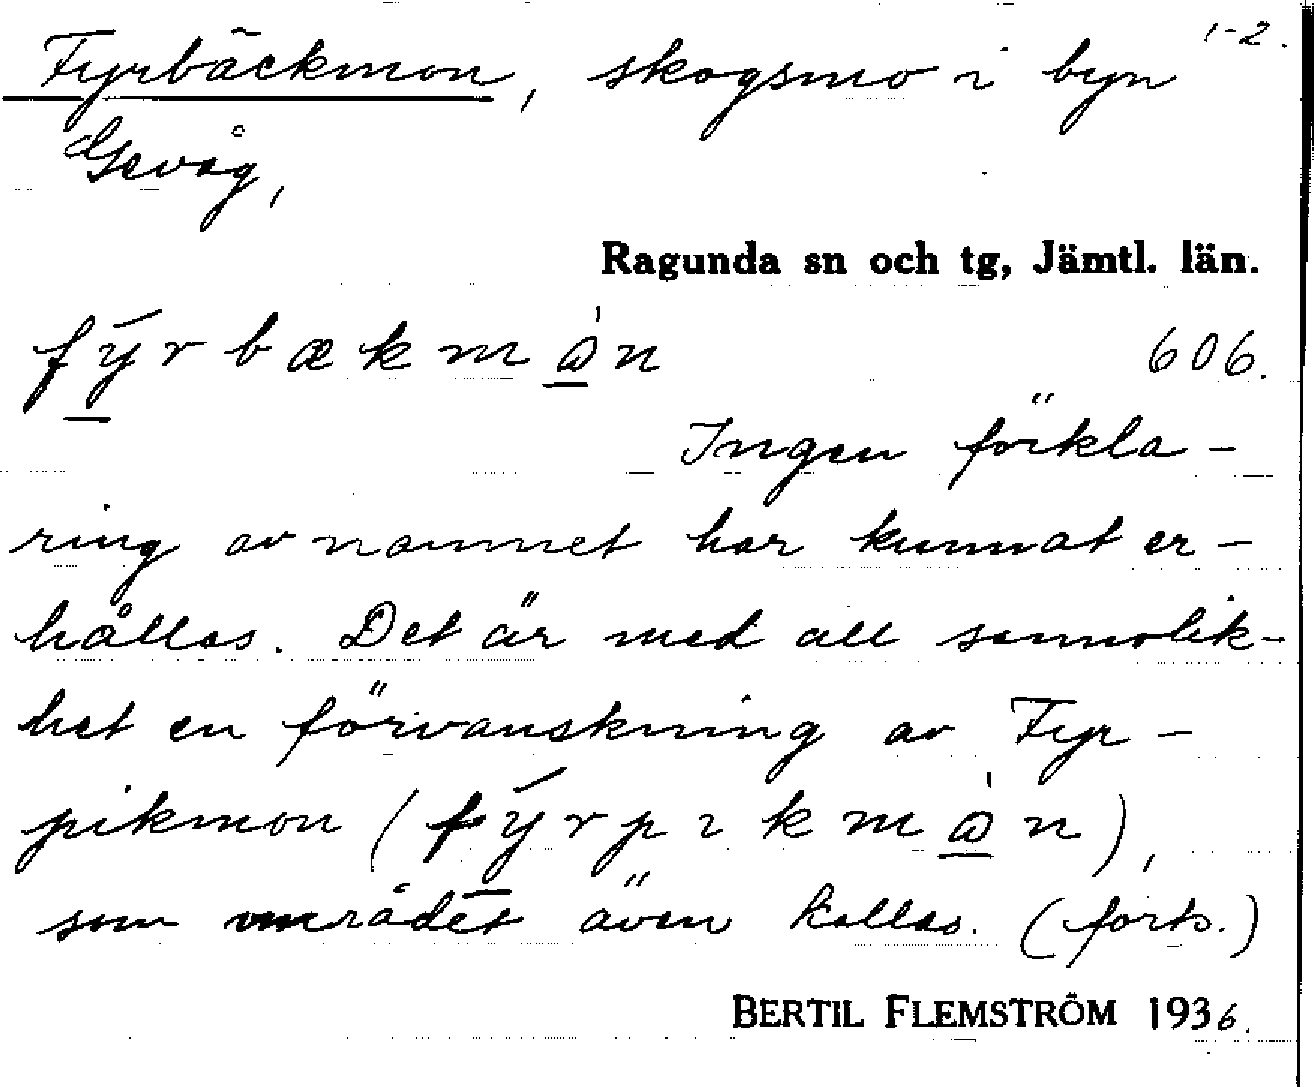 1-2.
Fyrbäckmon, skogsmo i byn
Gevåg,
Ragunda sn och tg, Jämtl. län.
fý̲rbækmɷ̲̀n 606.
Ingen förkla-
ring av namnet har kunnat er-
hållas. Det är med all sannolik-
het en förvanskning av Fyr-
pikmon (fý̲rpıkmɷ̲̀n),
som området även kallas. (forts.)
BERTIL FLEMSTRÖM 1936.